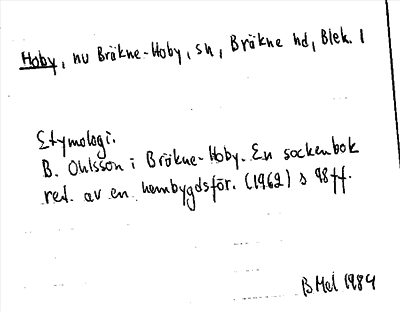 Hoby, nu Bräkne-Hoby, sn, Bräkne hd, Blek. l
Etymologi.
B. Ohlsson i Bräkne-Hoby. En sockenbok
red. av en hembygdsför. (1962) s 98 ff.
BMel 1984